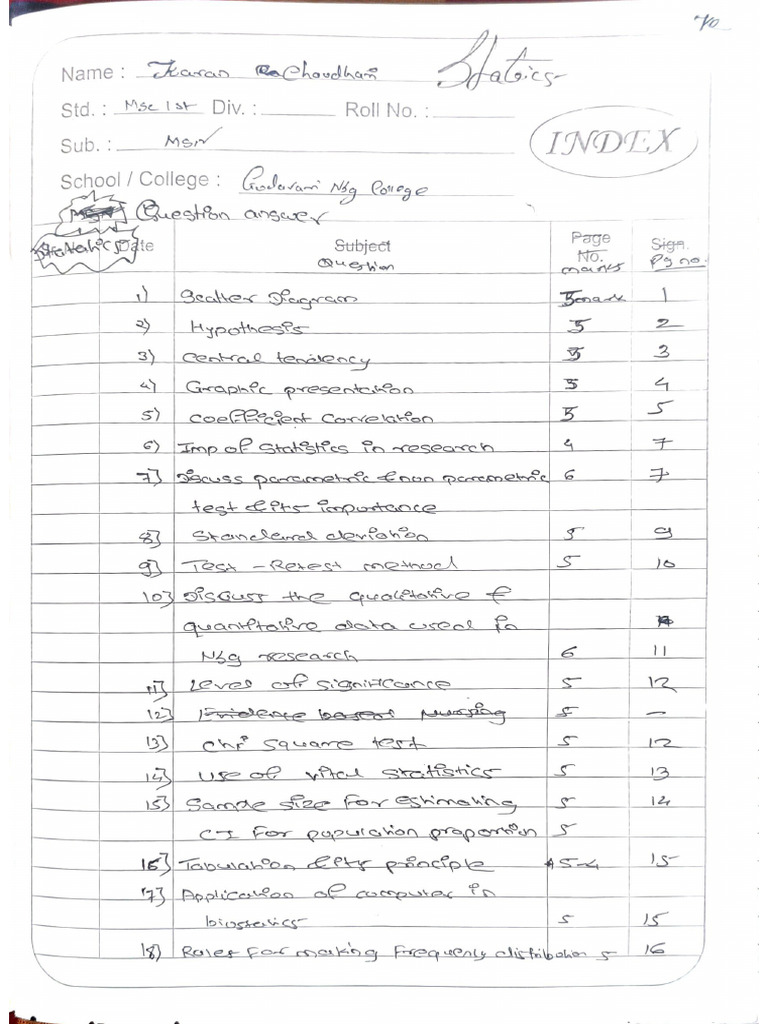 70
Name : Karan Choudhari Statics
Std. : Msc 1st Div. : Roll No. :
Sub. : MSN
INDEX
School / College : Godavari Nsg College
Question answer
Statatics Date Subject Page No. Sign.
Question marks Pg no.
1) Scatter Diagram 5 mark 1
2) Hypothesis 5 2
3) Central tendency 5 3
4) Graphic presentation 5 4
5) Coefficient Correlation 5 5
6) Imp of Statistics in research 4 7
7) Discuss parametric & non parametric 6 7
test & its importance
8) Standard deviation 5 9
9) Test - Retest method 5 10
10) Discuss the qualitative &
quantitative data used in
Nsg research 6 11
11) Level of significance 5 12
12) Evidence based nursing 5 -
13) Chi square test 5 12
14) Use of vital statistics 5 13
15) Sample size for estimating 5 14
CI For population proportion 5
16) Tabulation & its principle 5-4 15
17) Application of computer in
biostatics 5 15
18) Rules For making frequency distribution 5 16